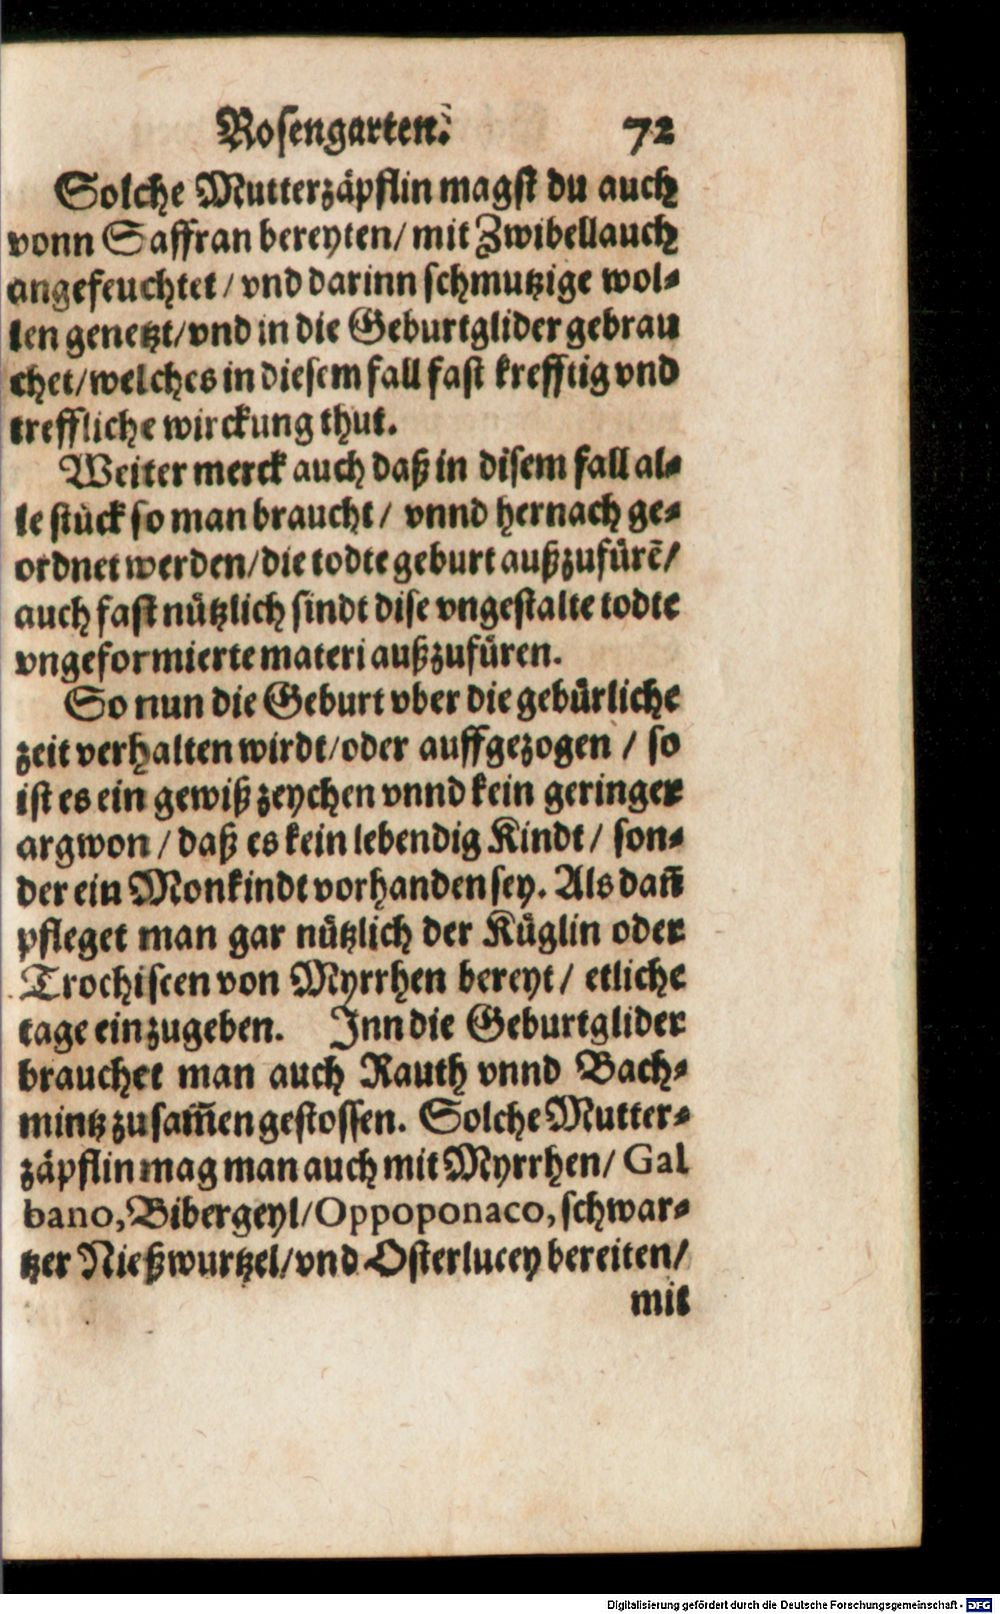 Rosengarten. 72
Solche Mutterzäpflin magst du auch
vonn Saffran bereyten/ mit Zwibellauch
angefeuchtet/ vnd darinn schmutzige wol-
len genetzt/ vnd in die Geburtglider gebrau
chet/ welches in diesem fall fast krefftig vnd
treffliche wirckung thut.
Weiter merck auch daß in disem fall al-
le stück so man braucht/ vnnd hernach ge-
ordnet werden/ die todte geburt außzufürẽ/
auch fast nützlich sindt dise vngestalte todte
vngeformierte materi außzufüren.
So nun die Geburt vber die gebürliche
zeit verhalten wirdt/ oder auffgezogen / so
ist es ein gewiß zeychen vnnd kein geringer
argwon / daß es kein lebendig Kindt/ son-
der ein Monkindt vorhanden sey. Als dañ
pfleget man gar nützlich der Küglin oder
Trochiscen von Myrrhen bereyt/ etliche
tage einzugeben. Inn die Geburtglider
brauchet man auch Rauth vnnd Bach-
mintz zusam̃en gestossen. Solche Mutter-
zäpflin mag man auch mit Myrrhen/ Gal
bano, Bibergeyl/ Oppoponaco, schwar-
tzer Nießwurtzel/ vnd Osterlucey bereiten/
mit
Digitalisierung gefördert durch die Deutsche Forschungsgemeinschaft - DFG